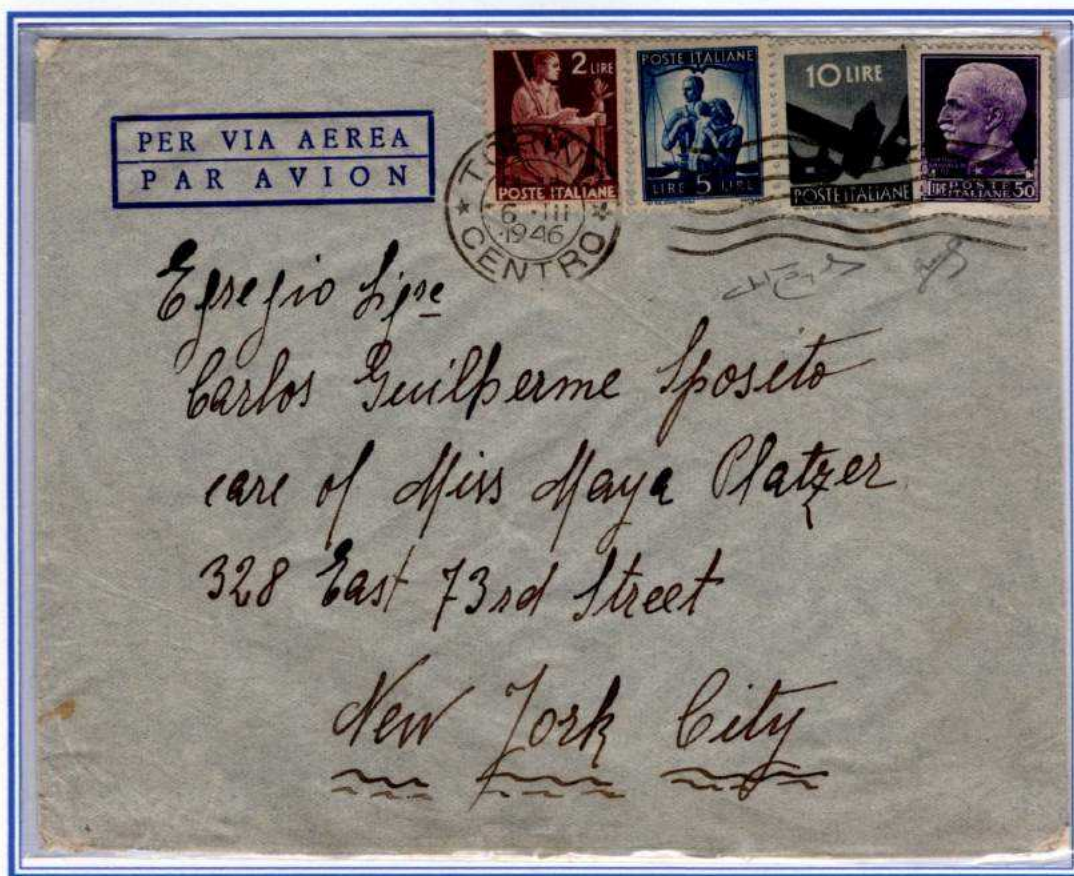 PER VIA AEREA
PAR AVION
2 LIRE
POSTE ITALIANE
POSTE ITALIANE
LIRE 5 LIRE
10 LIRE
POSTE ITALIANE
LIRE POSTE ITALIANE 50
TORINO
6 · III
·1946
CENTRO
Egregio Sigre
Carlos Guilherme Sposito
care of Miss Maya Platzer
328 East 73rd Street
New York City